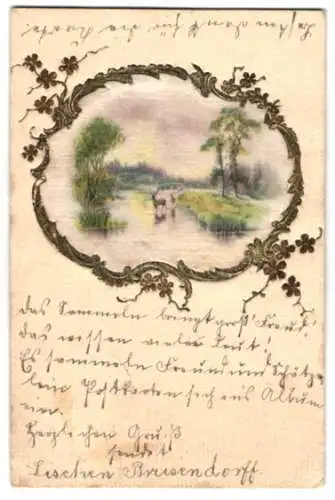 das Sammeln bringt groß' Freud',
das wissen viele Leut'!
Es sammeln Freund und Schätze-
lein Postkarten sich ins Album
ein.
Herzlichen Gruß
sendet
Lieschen Brusendorff.